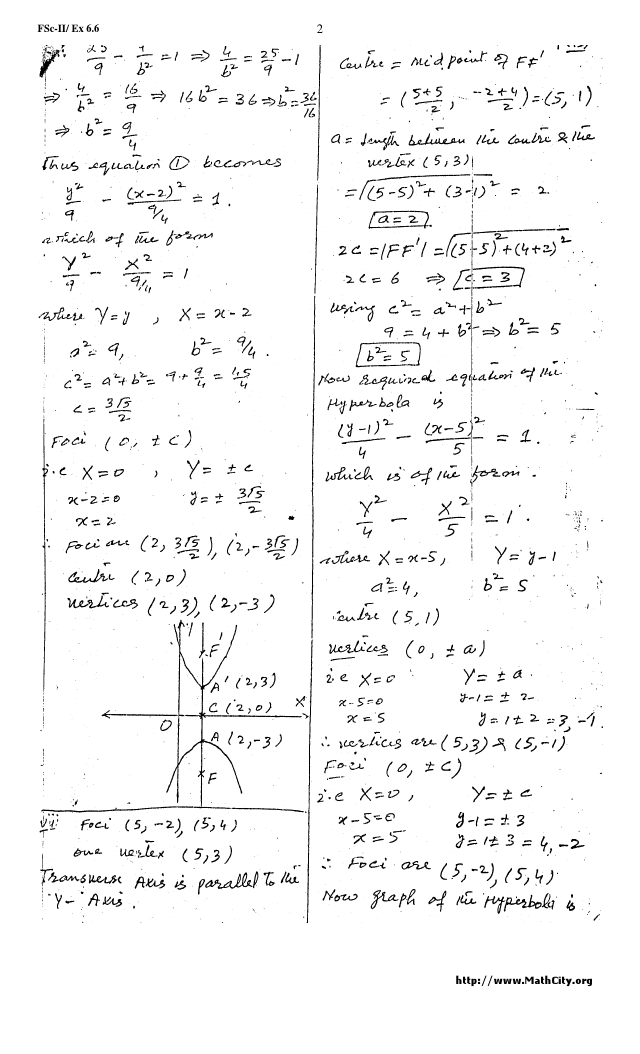 FSc-II/ Ex 6.6
2
25/9 - 4/b² = 1 ⇒ 4/b² = 25/9 - 1
⇒ 4/b² = 16/9 ⇒ 16b² = 36 ⇒ b² = 36/16
⇒ b² = 9/4
Thus equation ① becomes
y²/9 - (x-2)²/9/4 = 1.
which of the form
Y²/9 - X²/9/4 = 1
where Y = y , X = x - 2
a² = 9, b² = 9/4.
c² = a² + b² = 9 + 9/4 = 45/4
c = 3√5/2
Foci (0, ± c)
i.e X = 0 , Y = ± c
x - 2 = 0 y = ± 3√5/2
x = 2
∴ Foci are (2, 3√5/2), (2, -3√5/2)
Centre (2, 0)
Vertices (2, 3), (2, -3)
Y
F'
A' (2, 3)
C (2, 0) X
O
A (2, -3)
F
vi Foci (5, -2), (5, 4)
one vertex (5, 3)
Transverse Axis is parallel to the
Y- Axis.
Centre = Midpoint of FF'
= (5+5/2, -2+4/2) = (5, 1)
a = length between the Centre & the
vertex (5, 3)
= √(5-5)² + (3-1)² = 2
a = 2
2c = |FF'| = √(5-5)² + (4+2)²
2c = 6 ⇒ c = 3
using c² = a² + b²
9 = 4 + b² ⇒ b² = 5
b² = 5
Now Required equation of the
Hyperbola is
(y-1)²/4 - (x-5)²/5 = 1.
which is of the form.
Y²/4 - X²/5 = 1
where X = x-5, Y = y-1
a² = 4, b² = 5
Centre (5, 1)
vertices (0, ± a)
i.e X = 0 Y = ± a
x-5 = 0 y-1 = ± 2
x = 5 y = 1 ± 2 = 3, -1
∴ vertices are (5, 3) & (5, -1)
Foci (0, ± c)
i.e X = 0, Y = ± c
x-5 = 0 y-1 = ± 3
x = 5 y = 1 ± 3 = 4, -2
∴ Foci are (5, -2), (5, 4)
Now graph of the Hyperbola is
http://www.MathCity.org